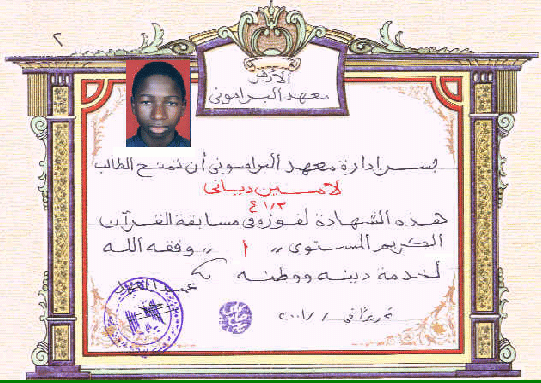 ٢
الأزهر
معهد البراموني
يسر إدارة معهد البراموني أن تمنح الطالب
لامين دياني
٤/٢/١
هذه الشهادة لفوزه في مسابقة القرآن
الكريم المستوى " ١ " وفقه الله
لخدمة دينه ووطنه
تحريرًا في / / ٢٠٠١